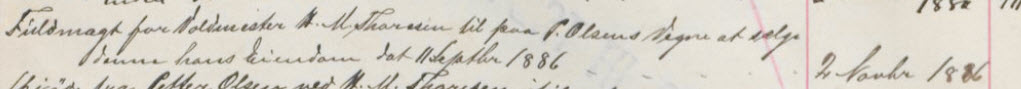 188
Fuldmagt for Voldmester H. M. Thoresen til paa P. Olsens Vegne at selge
denne hans Eiendom dat 11 Septbr 1886
2 Novbr 1886
fra Petter Olsen ved H. M. Thoresen